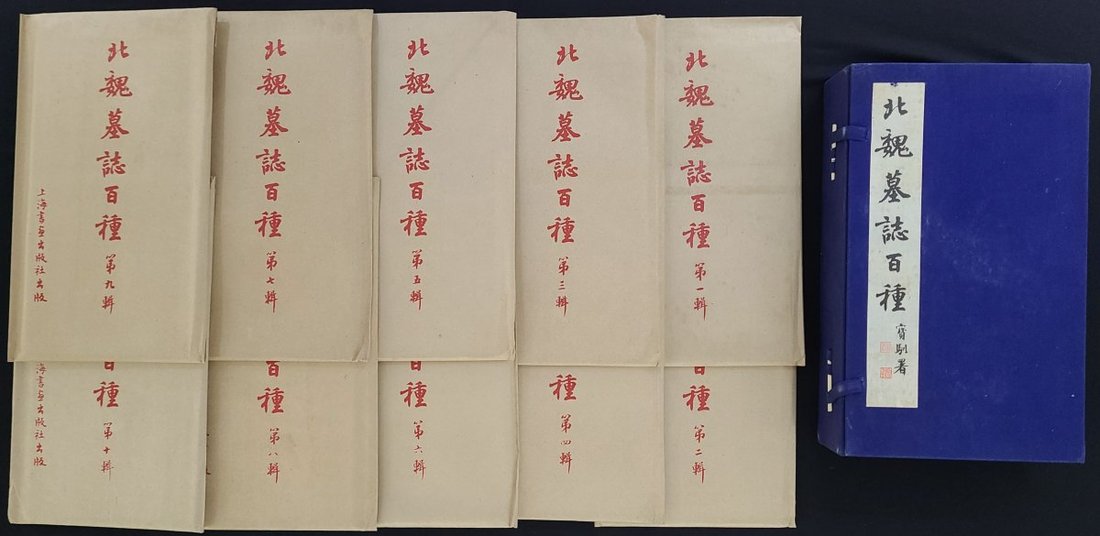 北魏墓誌百種
寶馴署
北魏墓誌百種 第一輯
北魏墓誌百種 第三輯
北魏墓誌百種 第五輯
北魏墓誌百種 第七輯
北魏墓誌百種 第九輯
上海書画出版社出版
百種 第二輯
種 第四輯
百種 第六輯
百種 第八輯
百種 第十輯
海書画出版社出版